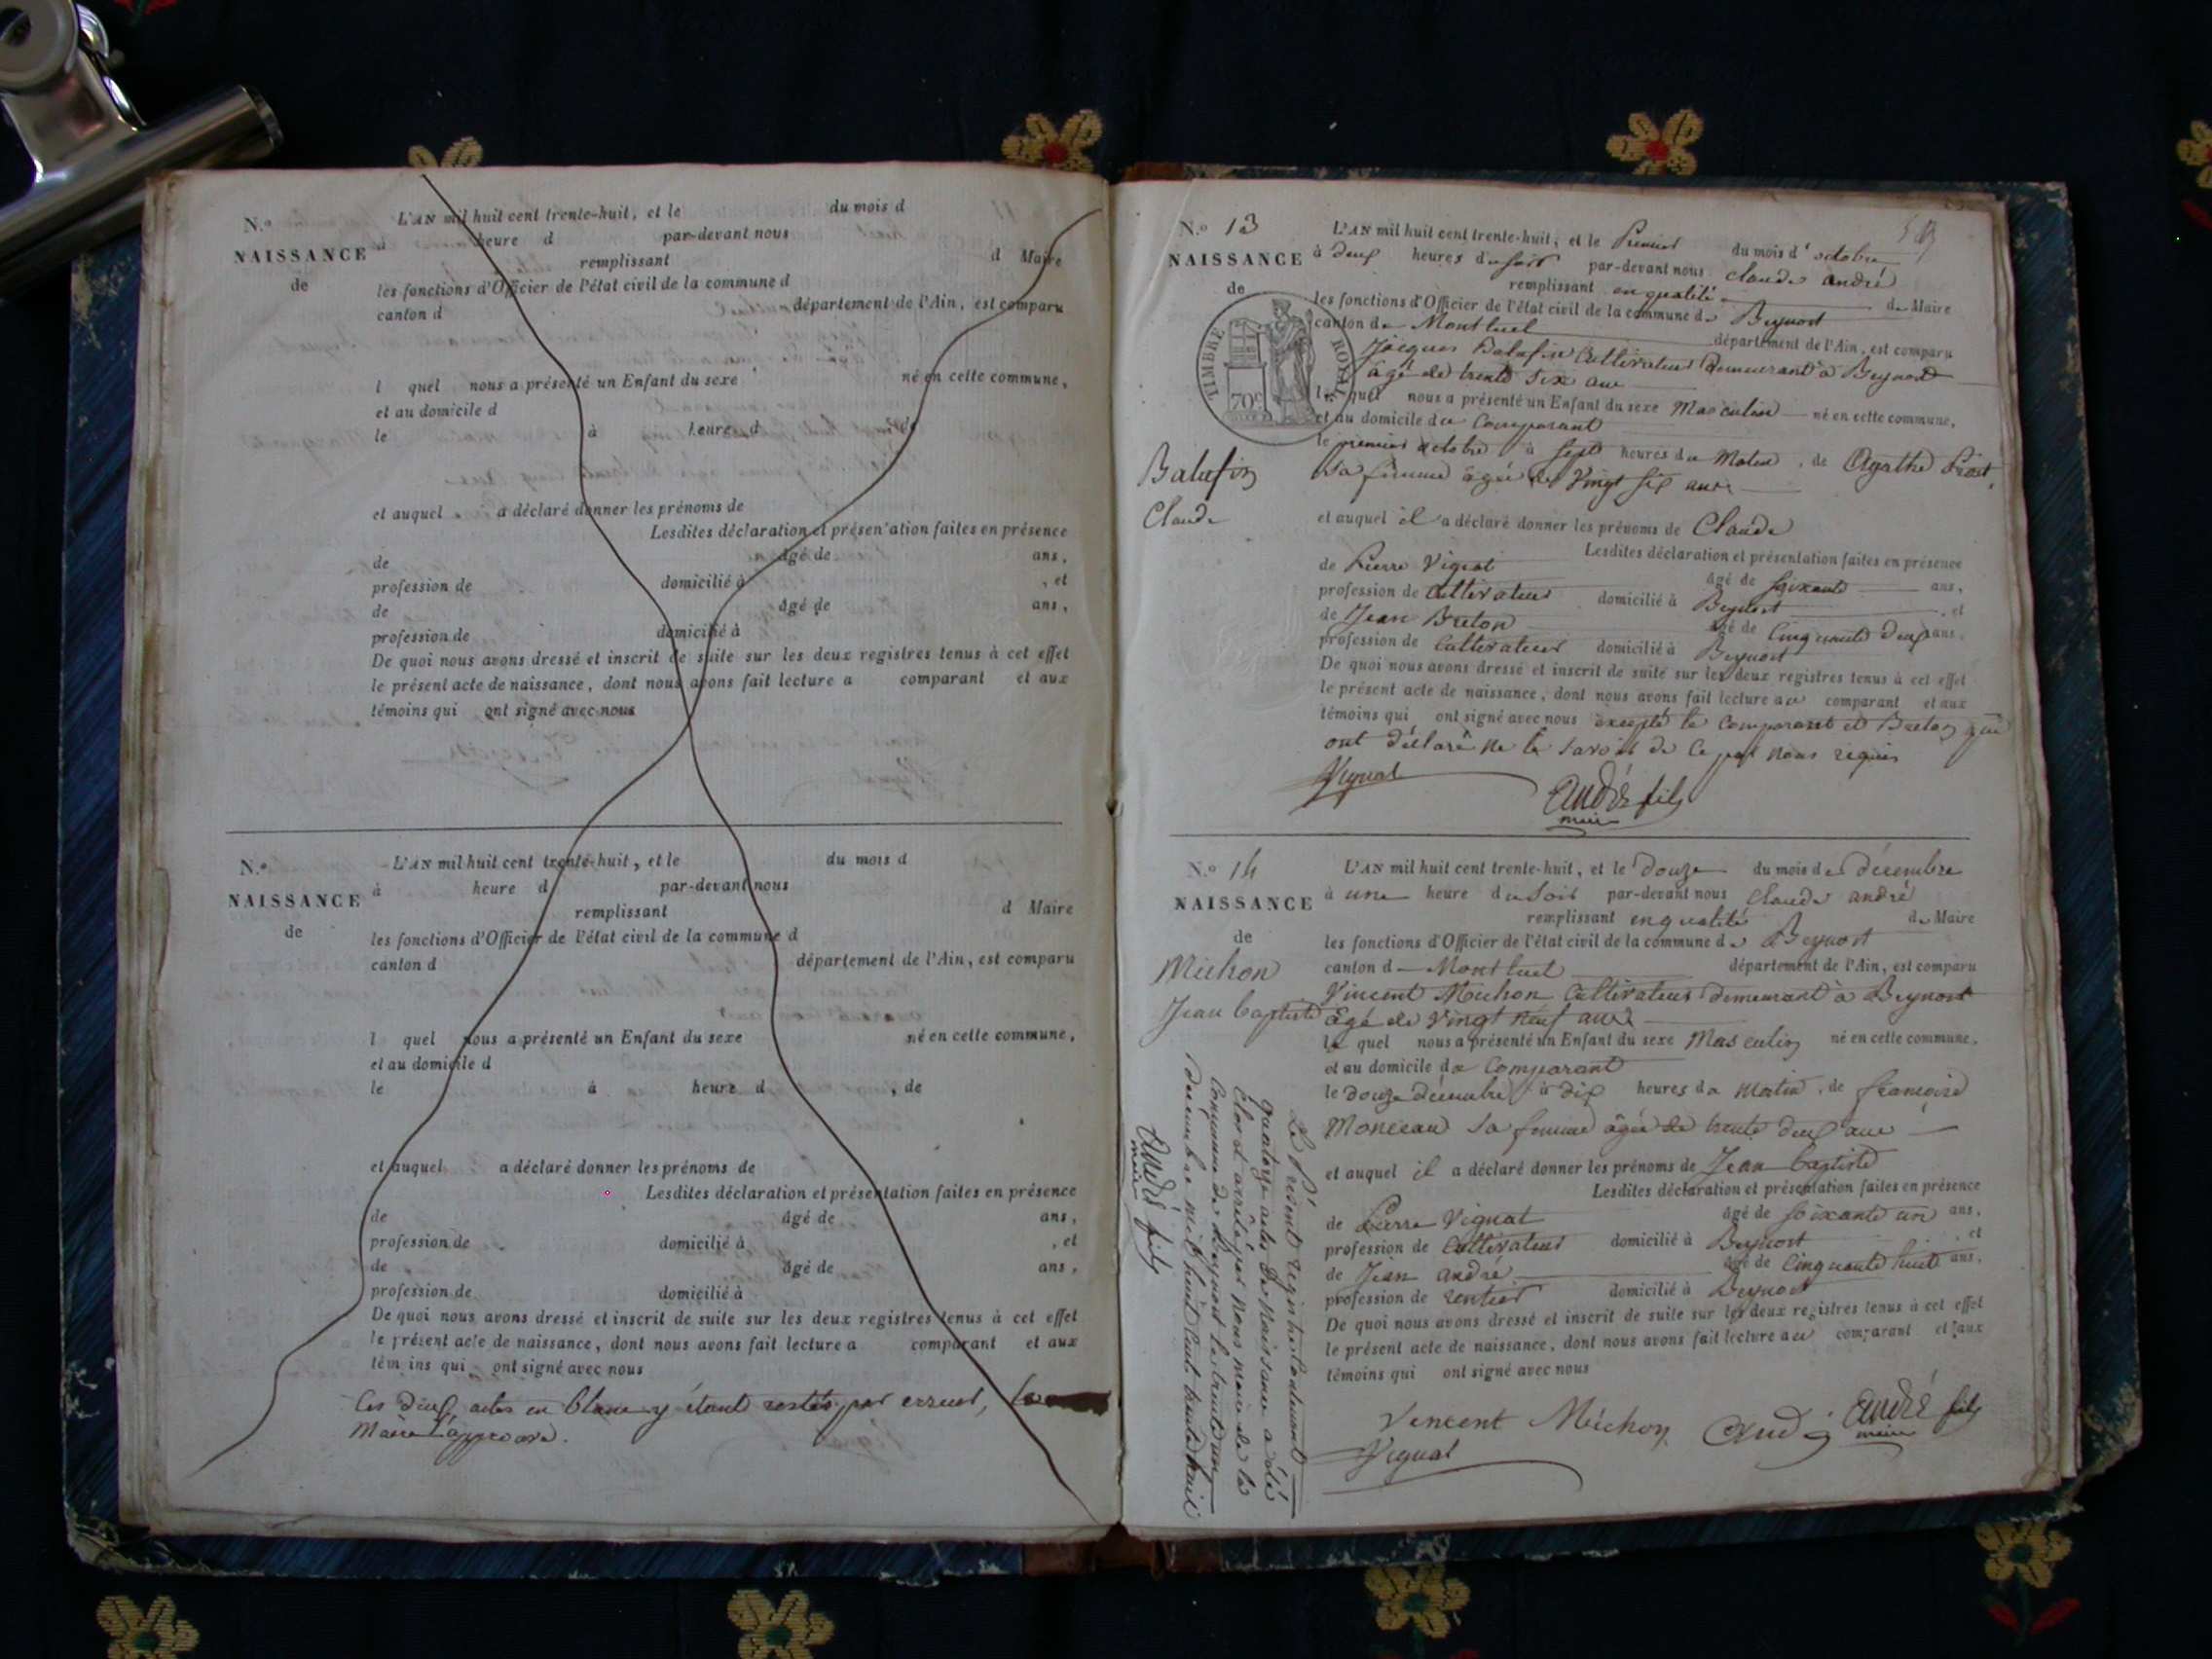 N.o
NAISSANCE
de
L'AN mil huit cent trente-huit, et le du mois d
à heure d par-devant nous
remplissant d Maire
les fonctions d'Officier de l'état civil de la commune d
canton d département de l'Ain, est comparu
l quel nous a présenté un Enfant du sexe né en cette commune,
et au domicile d
le à heure d de
et auquel a déclaré donner les prénoms de
Lesdites déclaration et présentation faites en présence
de âgé de ans,
profession de domicilié à , et
de âgé de ans,
profession de domicilié à
De quoi nous avons dressé et inscrit de suite sur les deux registres tenus à cet effet
le présent acte de naissance, dont nous avons fait lecture a comparant et aux
témoins qui ont signé avec nous
N.o
NAISSANCE
de
L'AN mil huit cent trente-huit, et le du mois d
à heure d par-devant nous
remplissant d Maire
les fonctions d'Officier de l'état civil de la commune d
canton d département de l'Ain, est comparu
l quel nous a présenté un Enfant du sexe né en cette commune,
et au domicile d
le à heure d , de
et auquel a déclaré donner les prénoms de
Lesdites déclaration et présentation faites en présence
de âgé de ans,
profession de domicilié à , et
de âgé de ans,
profession de domicilié à
De quoi nous avons dressé et inscrit de suite sur les deux registres tenus à cet effet
le présent acte de naissance, dont nous avons fait lecture a comparant et aux
témoins qui ont signé avec nous
Ces deux actes en blanc y étant restés par erreur, le
Maire l'approuve.
N.o 13
NAISSANCE
de
TIMBRE ROYAL
70c
Balufin
Claude
L'AN mil huit cent trente-huit, et le Premier du mois d'octobre
à deux heures du soir par-devant nous Claude andré
remplissant en qualité de Maire
les fonctions d'Officier de l'état civil de la commune de Beynost
canton de Montluel département de l'Ain, est comparu
Jacques Balufin Cultivateur demeurant à Beynost
âgé de trente six ans
lequel nous a présenté un Enfant du sexe Masculin né en cette commune,
et au domicile du Comparant
le premier octobre à sept heures du Matin, de Agathe
sa femme âgée de Vingt six ans
et auquel il a déclaré donner les prénoms de Claude
Lesdites déclaration et présentation faites en présence
de Pierre Vignat âgé de soixante ans,
profession de Cultivateur domicilié à Beynost , et
de Jean Breton âgé de Cinquante deux ans,
profession de Cultivateur domicilié à Beynost
De quoi nous avons dressé et inscrit de suite sur les deux registres tenus à cet effet
le présent acte de naissance, dont nous avons fait lecture au comparant et aux
témoins qui ont signé avec nous excepté le Comparant et Breton qui
ont déclaré ne le savoir de ce par nous requis
Vignat
André fils
maire
N.o 14
NAISSANCE
de
Michon
Jean baptiste
L'AN mil huit cent trente-huit, et le douze du mois de décembre
à une heure du soir par-devant nous Claude andré
remplissant en qualité de Maire
les fonctions d'Officier de l'état civil de la commune de Beynost
canton d Montluel département de l'Ain, est comparu
Vincent Michon Cultivateur demeurant à Beynost
âgé de Vingt neuf ans
le quel nous a présenté un Enfant du sexe Masculin né en cette commune,
et au domicile du Comparant
le douze décembre à dix heures du Matin, de françoise
Monceau sa femme âgée de trente deux ans
et auquel il a déclaré donner les prénoms de Jean baptiste
Lesdites déclaration et présentation faites en présence
de Pierre Vignat âgé de soixante un ans,
profession de Cultivateur domicilié à Beynost , et
de Jean andré âgé de Cinquante huit ans,
profession de rentier domicilié à Beynost
De quoi nous avons dressé et inscrit de suite sur les deux registres tenus à cet effet
le présent acte de naissance, dont nous avons fait lecture au comparant et aux
témoins qui ont signé avec nous
Vincent Michon
André fils
maire
Vignat
Le Présent registre contenant
quatorze actes de Naissance a été
Clos et arrêté par Nous maire de la
Commune de Beynost le trente un
décembre mil huit Cent trente huit
André fils
maire